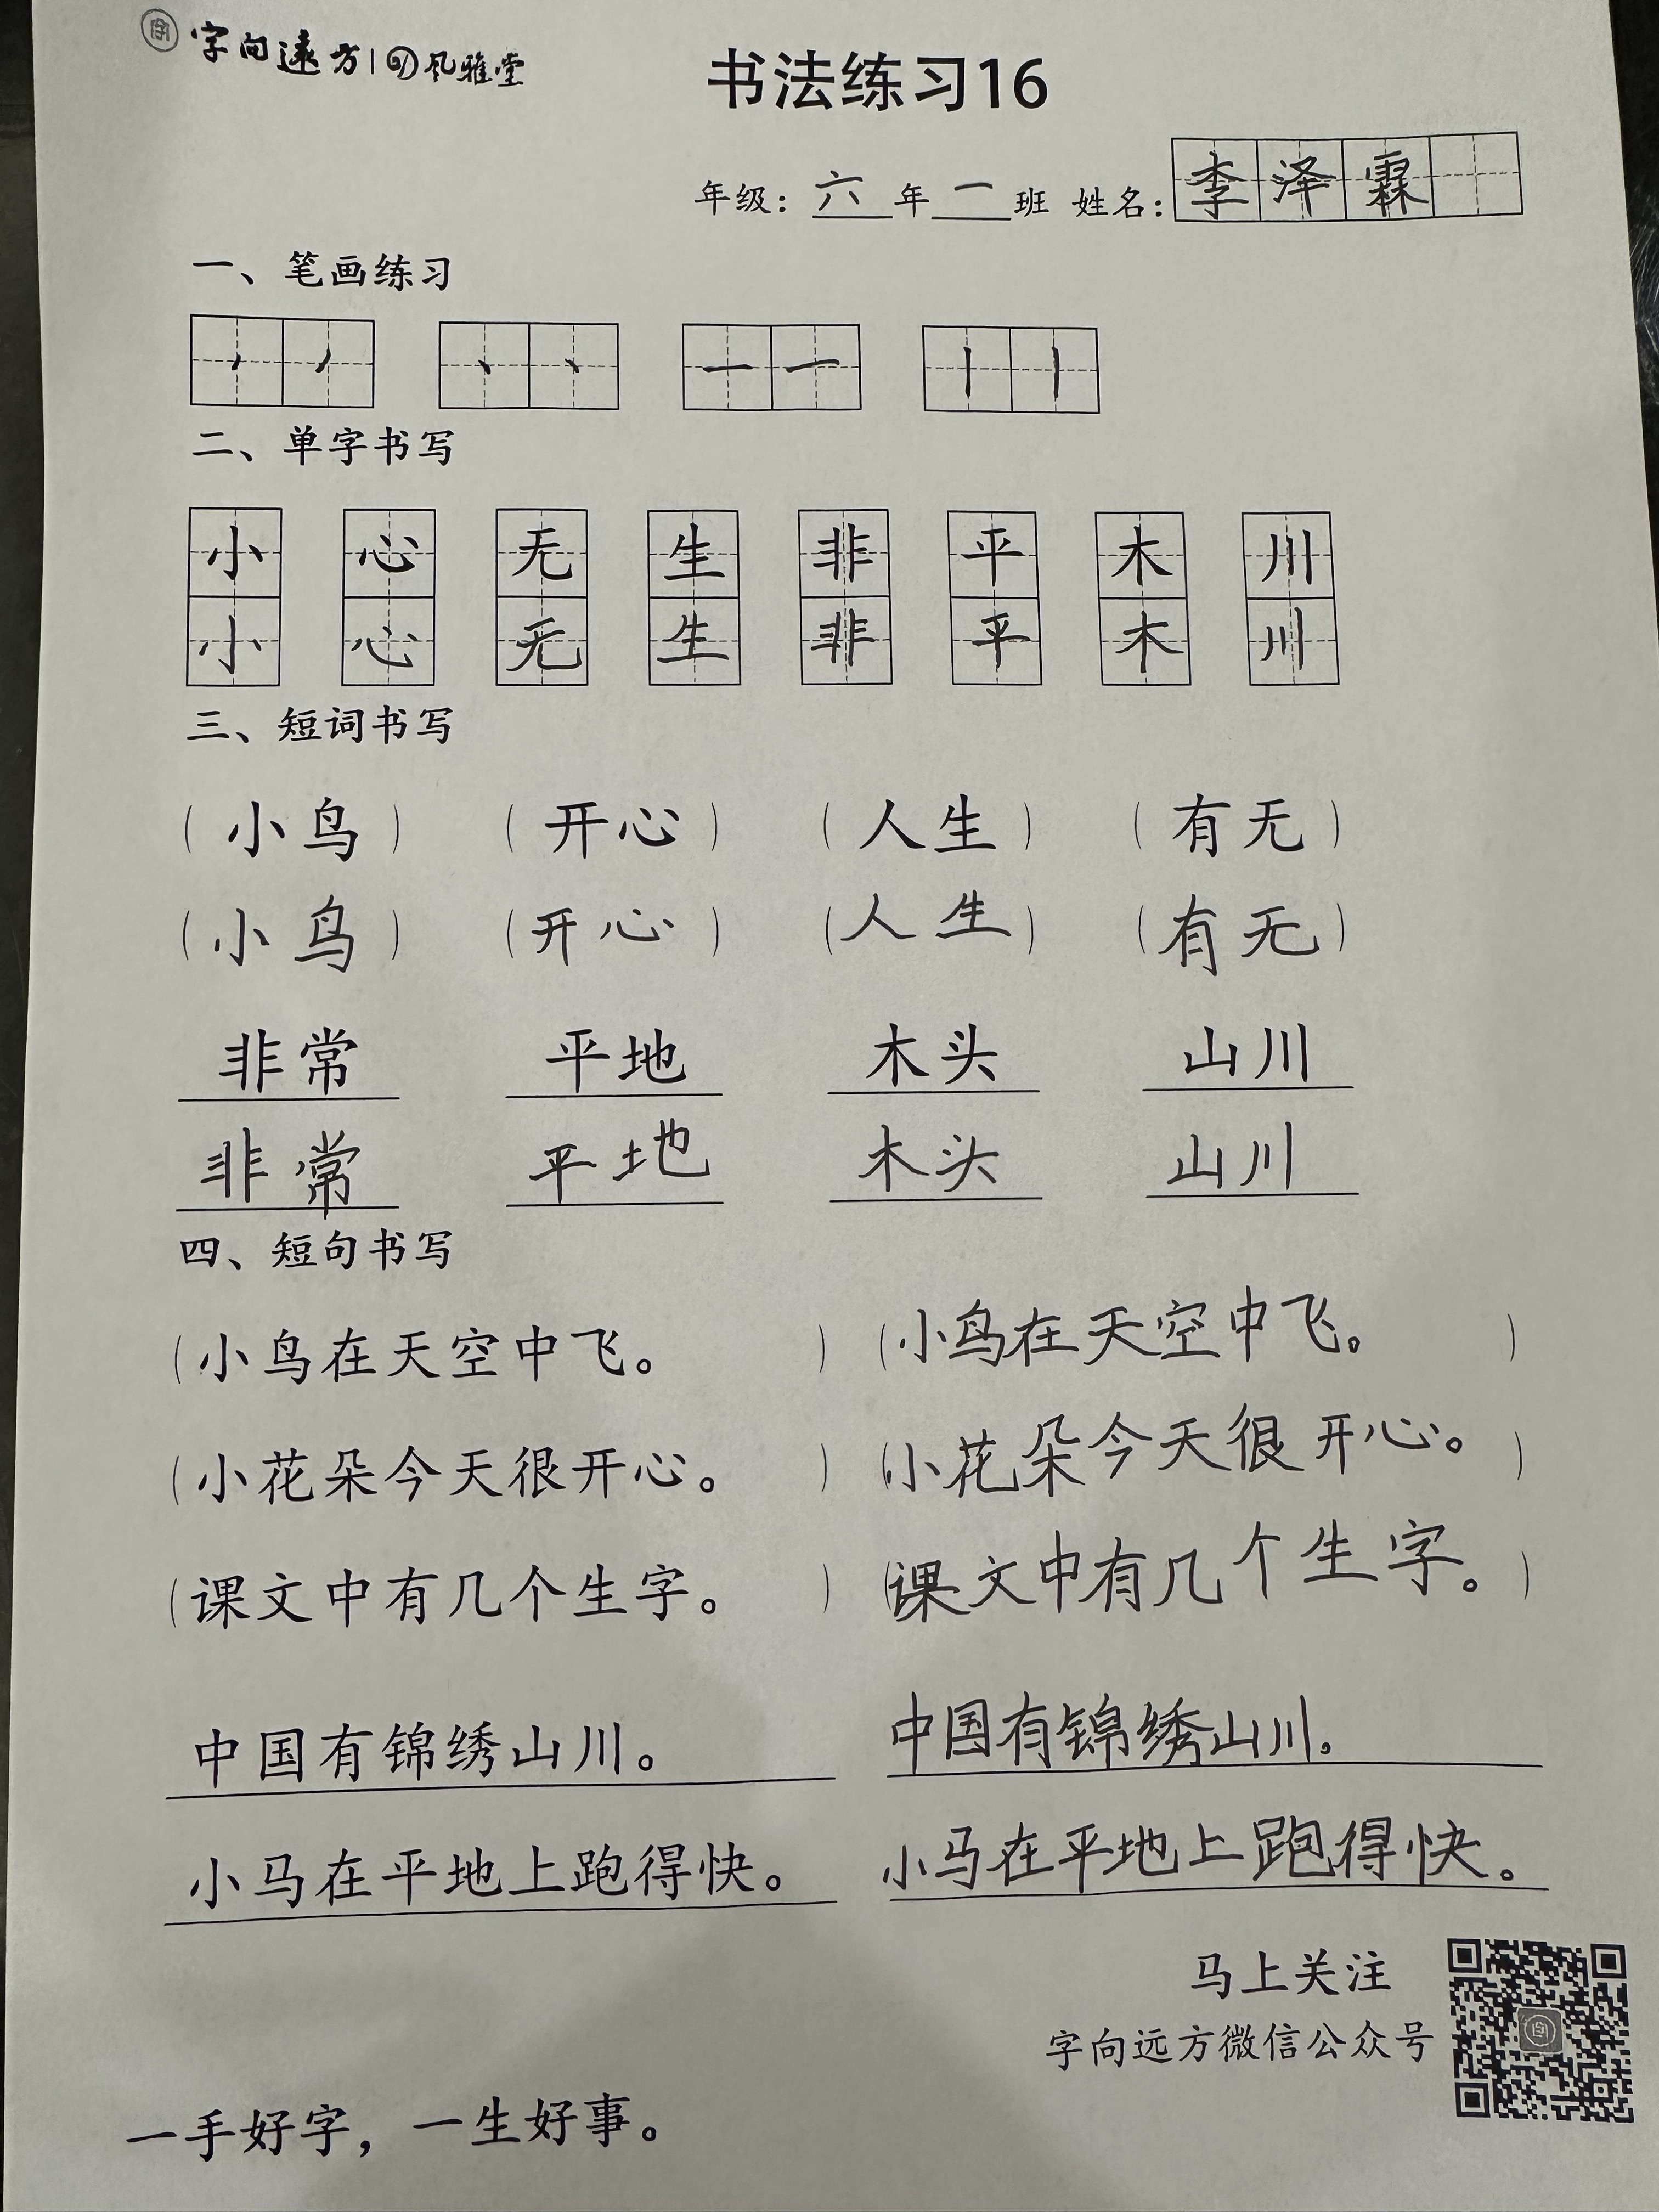 字向远方|风雅堂
书法练习16
年级：六年一班 姓名：李泽霖
一、笔画练习
二、单字书写
小 心 无 生 非 平 木 川
小 心 无 生 非 平 木 川
三、短词书写
（小鸟） （开心） （人生） （有无）
（小鸟） （开心） （人生） （有无）
非常 平地 木头 山川
非常 平地 木头 山川
四、短句书写
（小鸟在天空中飞。） （小鸟在天空中飞。）
（小花朵今天很开心。） （小花朵今天很开心。）
（课文中有几个生字。） （课文中有几个生字。）
中国有锦绣山川。 中国有锦绣山川。
小马在平地上跑得快。 小马在平地上跑得快。
马上关注
字向远方微信公众号
一手好字，一生好事。